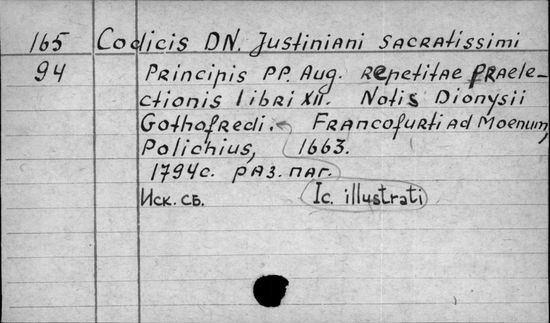 165 Codicis DN. Justiniani sacratissimi
94 Principis PP. Aug. repetitae praele-
ctionis libri XII. Notis Dionysii
Gothofredi. Francofurti ad Moenum,
Polichius, 1663.
1794с. раз. паг.
Иск. сб. Ic. illustrati